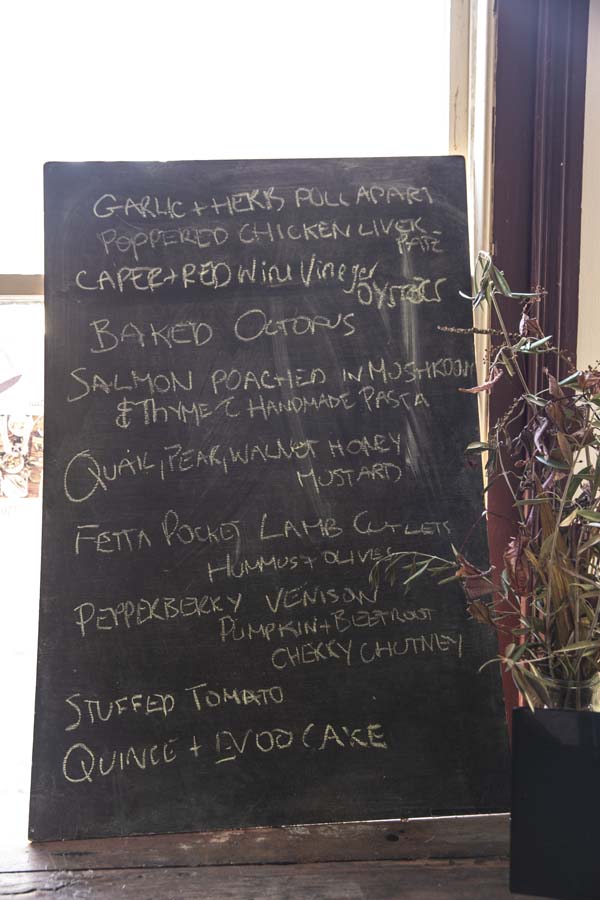 GARLIC + HERB PULL APART
POPPERED CHICKEN LIVER
PATE
CAPER + RED Wine Vineger
OYSTERS
BAKED OCTOPUS
SALMON POACHED IN MUSHROOM
& THYME C HANDMADE PASTA
QUAIL, PEAR, WALNUT HONEY
MUSTARD
FETTA POCKET LAMB CUTLETS
HUMMUS + OLIVES
PEPPERBERRY VENISON
PUMPKIN + BEETROOT
CHERRY CHUTNEY
STUFFED TOMATO
QUINCE + EVOO CAKE